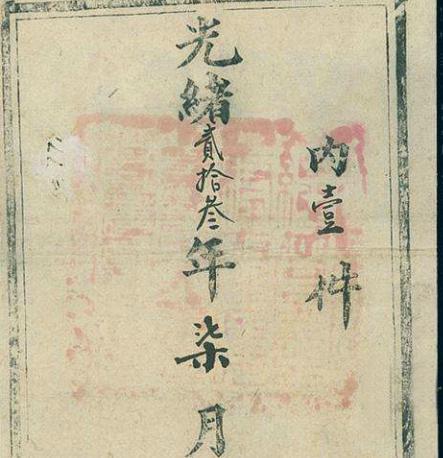 內壹件
光緒貳拾叁年柒月